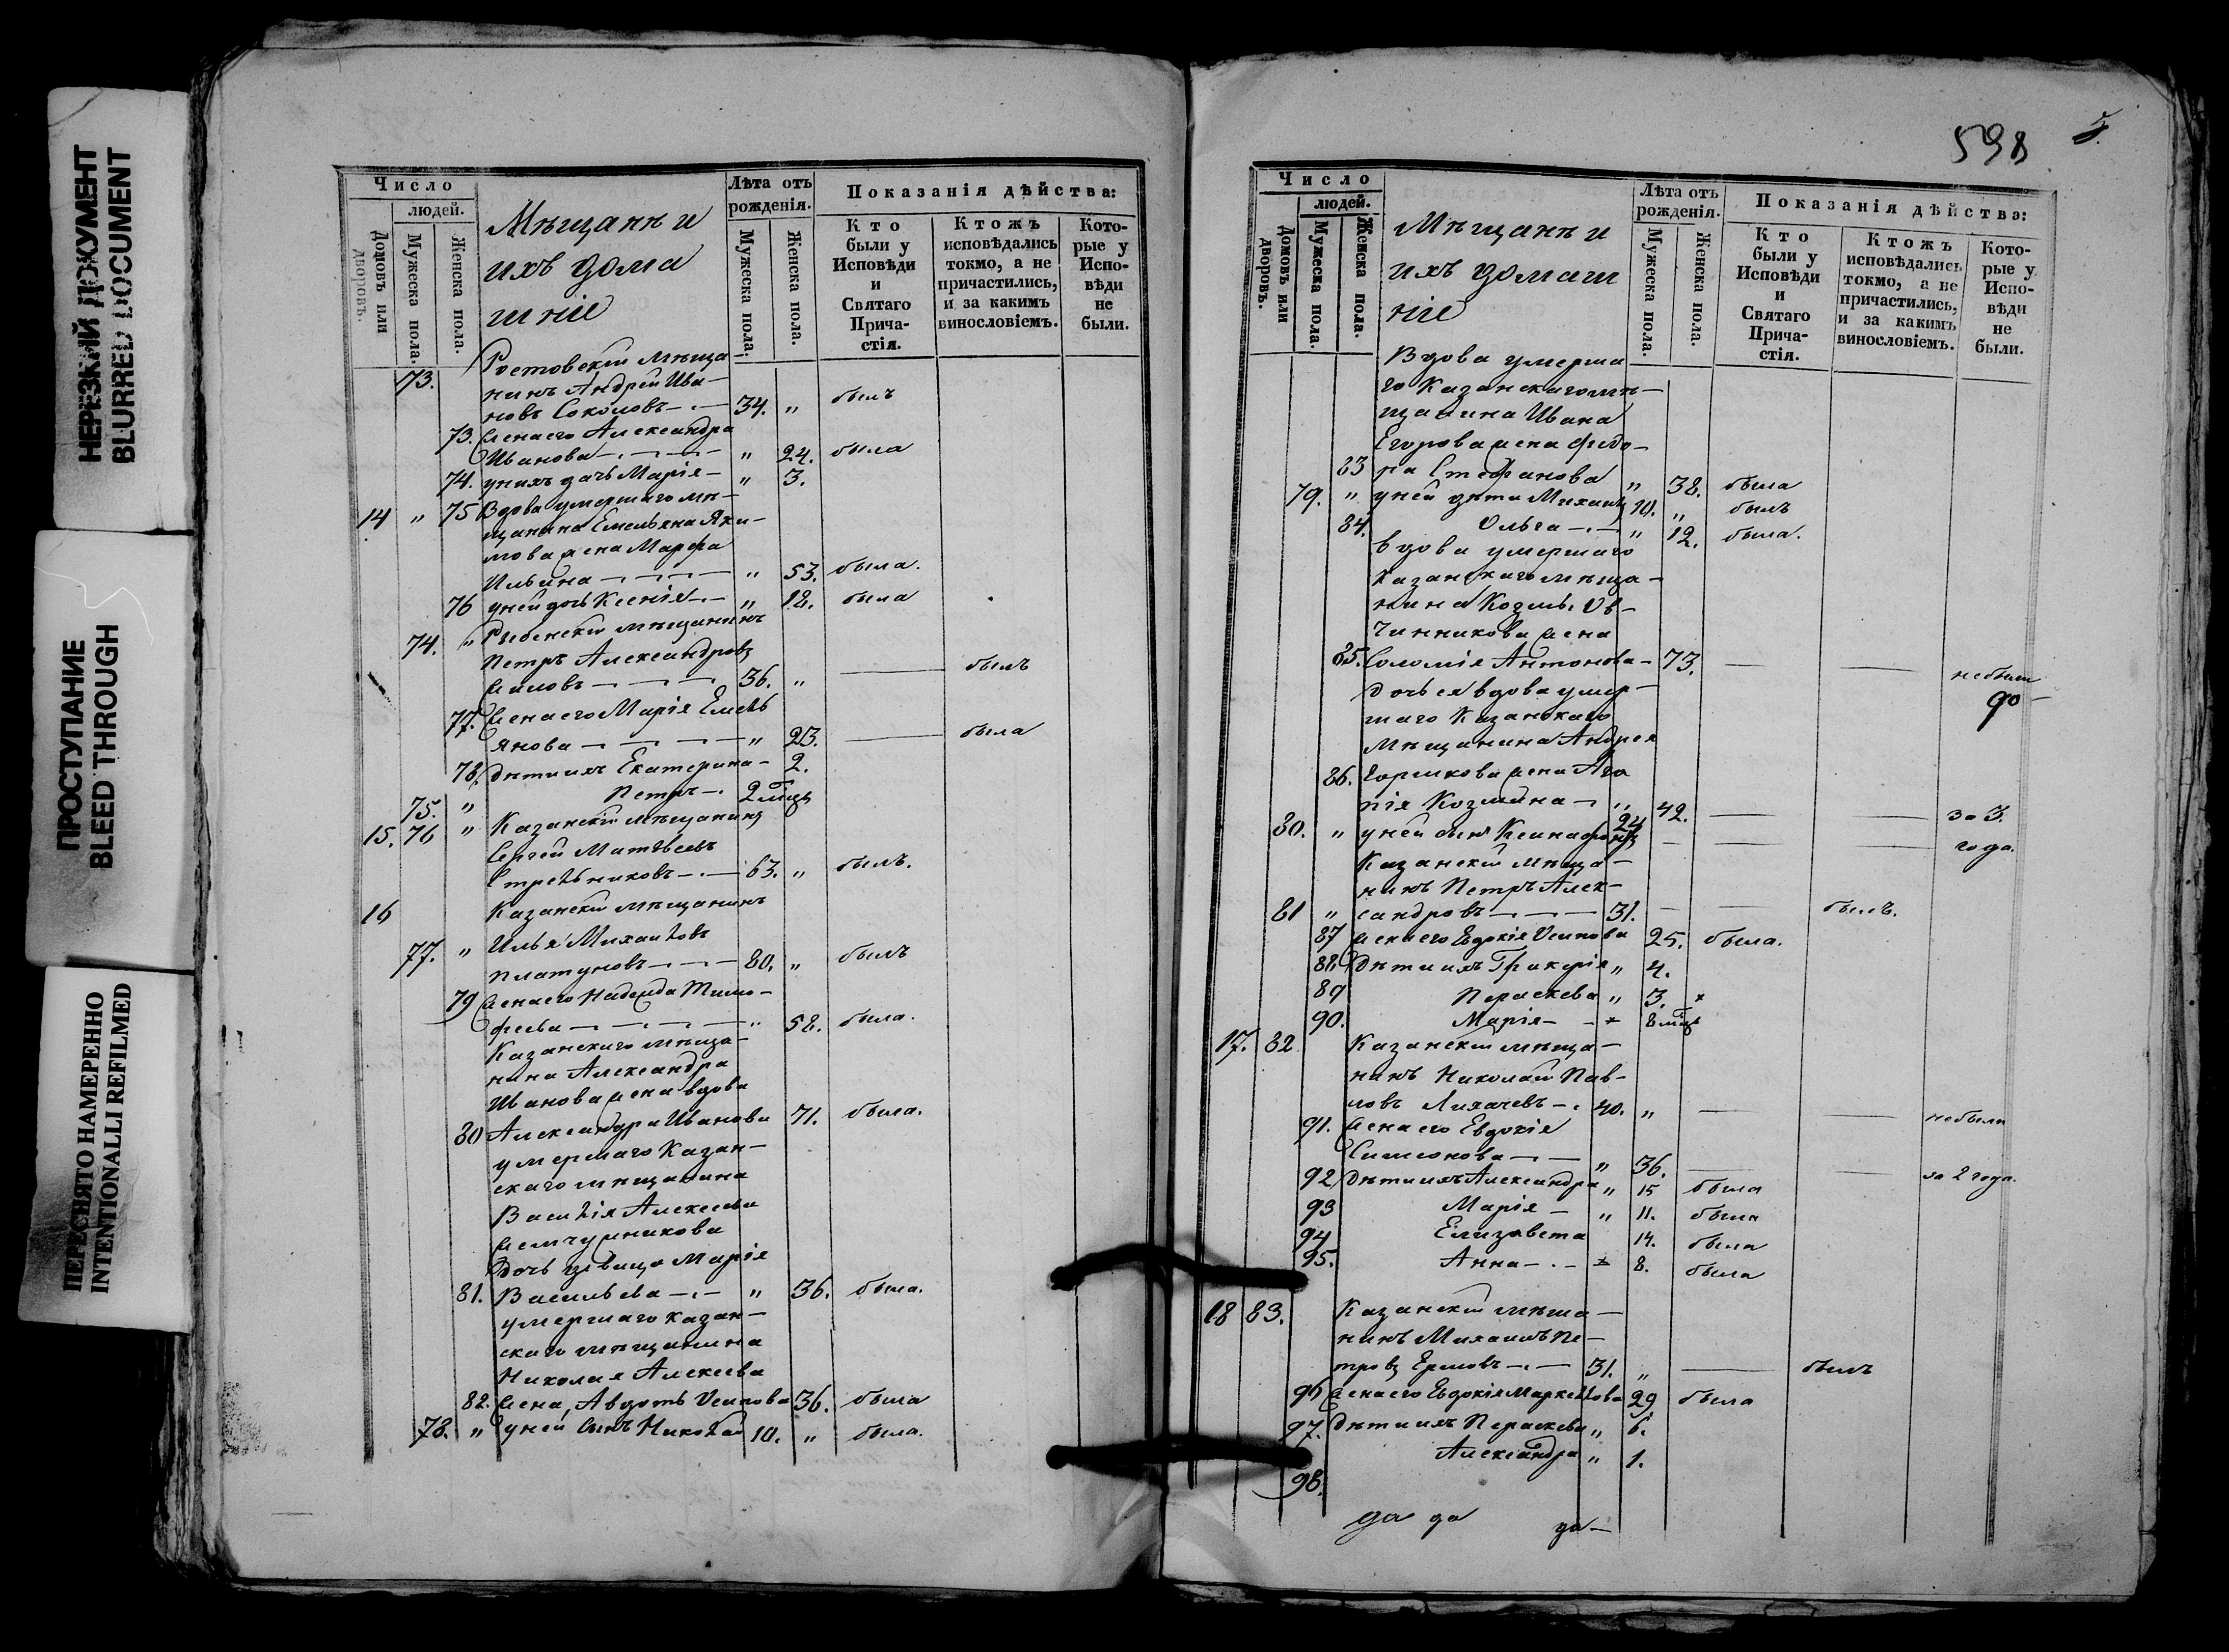 НЕРЕЗКИЙ ДОКУМЕНТ
BLURRED DOCUMENT
ПРОСТУПАНИЕ
BLEED THROUGH
ПЕРЕСНЯТО НАМЕРЕННО
INTENTIONALLI REFILMED
Число
людей.
Домовъ или дворовъ.
Мужеска пола.
Женска пола.
Мѣщанѣ и
ихъ дома
шніе
Лѣта отъ рожденія.
Мужеска пола.
Женска пола.
Показанія дѣйства:
Кто были у Исповѣди и Святаго Прича-стія.
Ктожъ исповѣдались токмо, а не причастились, и за какимъ винословіемъ.
Кото-рые у Испо-вѣди не были.
Ростовскій мѣща
73. нинъ Андрей Ива-
новъ Соколовъ 34. " былъ
73. Жена его Александра
Иванова " 24. была
74. у нихъ дочь Марія " 3.
14 " 75 Вдова умершаго мѣ-
щанина Емельяна Яки-
мова жена Марфа
Ильина " 53. была.
76 у ней дочь Ксенія " 18. была
74. " Рыбенскій мѣщанинъ
Петръ Александровъ
36. " былъ
77. Жена его Марія Емель
янова " 23. была
78. Дѣти ихъ Екатерина 2.
75. " Петръ 2 мѣць
15. 76 " Казанскій мѣщанинъ
Сергей Матвѣевъ
Стрельниковъ 63. " былъ.
16 Казанскій мѣщанинъ
77. " Илья Михайловъ
Платуновъ 80. " былъ
79 Жена его Надежда Тимо-
феева " 58. была.
Казанскаго мѣща-
нина Александра
Иванова жена вдова
80 Александра Иванова 71. была.
умершаго Казан-
скаго мѣщанина
Василія Алексеева
Жемчужникова
Дочь девица Марія
81. Васильева " 36. была.
умершаго казан-
скаго мѣщанина
Николая Алексеева
82. Жена, Авдотья Осипова 36. была
78. " у ней сынъ Николай 10. " была.
598 5.
Число
людей.
Домовъ или дворовъ.
Мужеска пола.
Женска пола.
Мѣщанѣ и
ихъ домаш
ніе
Лѣта отъ рожденія.
Мужеска пола.
Женска пола.
Показанія дѣйства:
Кто были у Исповѣди и Святаго Прича-стія.
Ктожъ исповѣдались токмо, а не причастились, и за какимъ винословіемъ.
Кото-рые у Испо-вѣди не были.
Вдова умерша
го Казанскаго мѣ-
щанина Ивана
Егорова жена Федо-
83 ра Стефанова " 38. была
79. " у ней дѣти Михаилъ 10. " былъ
84. Ольга " 12. была.
вдова умершаго
Казанскаго мѣща-
нина Козмы Ов-
чинникова жена
85. Соломія Антонова 73. не были
дочь ея вдова умер-
до
шаго Казанскаго
Мѣщанина Андрея
86. Горшкова жена Ага
пія Козмина " 42. за 3
80. " у ней сынъ Ксинофонтъ 24 года.
Казанскій мѣща-
нинъ Петръ Алек-
81 " сандровъ 31. былъ.
87 Жена его Евдокія Осипова 25. была.
88. Дѣти ихъ Гликерія " 4.
89 Параскева " 3.
90. Марія 8 мѣць
17. 82 Казанскій мѣща-
нинъ Николай Пав-
ловъ Лихачевъ 40. " не были
91. Жена его Евдокія
Симеонова " 36. за 2 года.
92 Дѣти ихъ Александра " 15 была
93 Марія " 11. была
94 Елизавета 14. была
95. Анна 8. была
18 83. Казанскій мѣща-
нинъ Михаилъ Пе-
тровъ Ермовъ 31. " былъ
96 Жена его Евдокія Маркеллова 29 была
97. Дѣти ихъ Параскева " 6.
Александра " 1.
98.
да да да